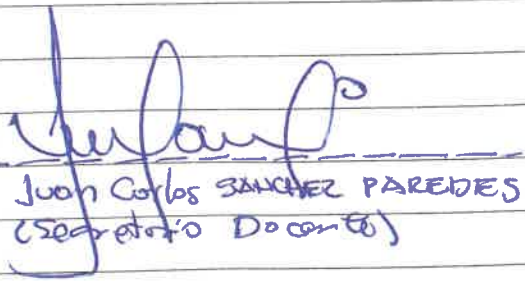 Juan Carlos SANCHEZ PAREDES
(Secretario Docente)